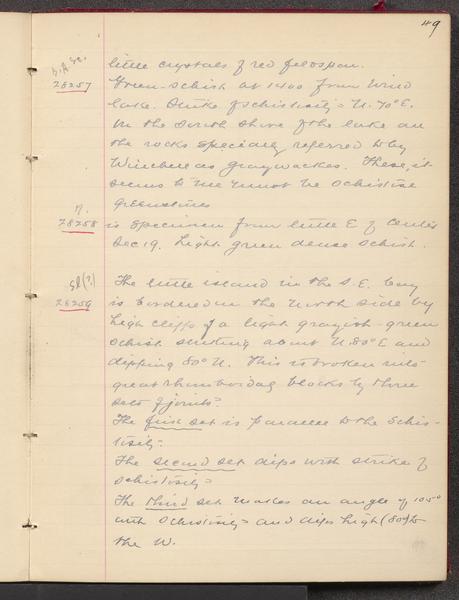 49
little crystals of red feldspar.
28257 Green-schist at 1400 from Wind
lake. Strike of schistosity = N. 70° E.
On the South shore of the lake are
the rocks specially referred to by
Winchell as graywackes. These, it
seems to me must be schistose
greenstones
N.
28258 is specimen from little E of center
Sec 19. Light green dense schist.
Sl(?)
28259 The little island in the S.E. bay
is bordered on the north side by
high cliffs of a light grayish-green
schist striking about N. 80° E and
dipping 80° N. This is broken into
great rhomboidal blocks by three
sets of joints=
The first set is parallel to the schis-
tosity=
The second set dips with strike of
schistosity=
The third set makes an angle of 105°
with schistosity = and dips high (80°) to
the W.